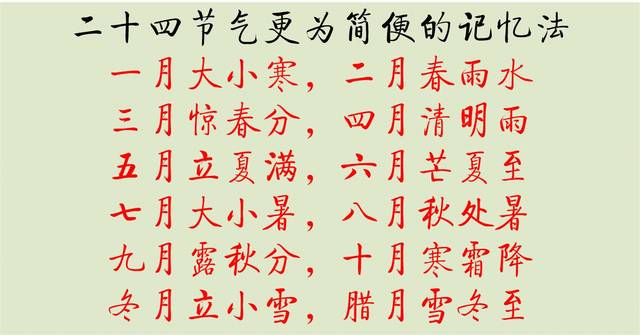 二十四节气更为简便的记忆法
一月大小寒，二月春雨水
三月惊春分，四月清明雨
五月立夏满，六月芒夏至
七月大小暑，八月秋处暑
九月露秋分，十月寒霜降
冬月立小雪，腊月雪冬至